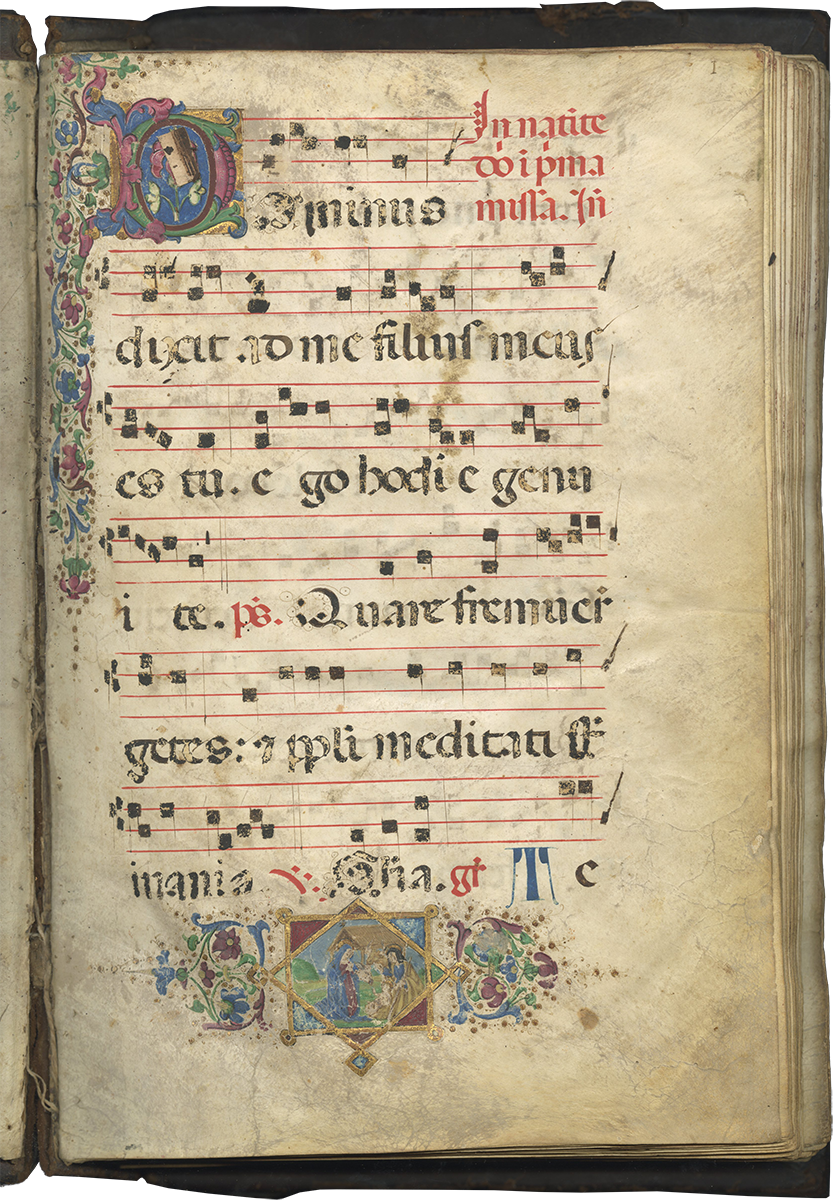 1
In natite
dō i p̄ma
missa. Iñ
Dominus
dixit ad me filius meus
es tu. e go hodi e genu
i te. ps̄. Quare fremuer̄
getes: ⁊ ppli meditati st̄
inania. ℣. Gl̄ia. gr̄ T e